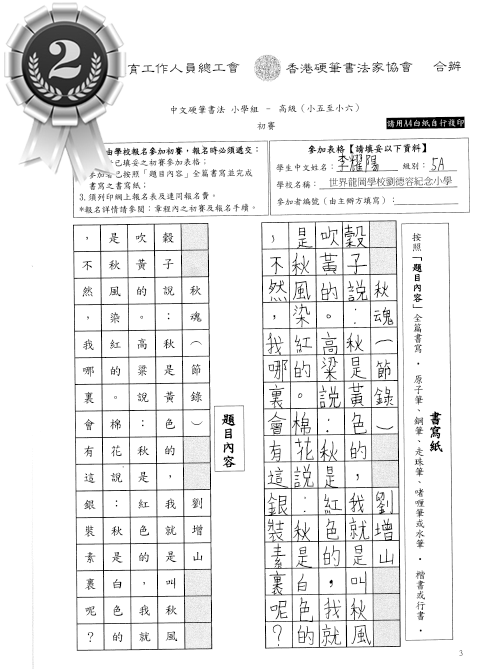 2
育工作人員總工會 香港硬筆書法家協會 合辦
中文硬筆書法 小學組 － 高級（小五至小六）
初賽
請用A4白紙自行複印
由學校報名參加初賽，報名時必須遞交：
已填妥之初賽參加表格；
參加者已按照「題目內容」全篇書寫並完成
書寫之書寫紙；
3. 須列印網上報名表及連同報名費。
*報名詳情請參閱：章程內之初賽及報名手續。
參加表格【請填妥以下資料】
學生中文姓名：李耀陽 級別：5A
學校名稱：世界龍岡學校劉德容紀念小學
參加者編號（由主辦方填寫）：
書寫紙
按照「題目內容」全篇書寫。原子筆、鋼筆、走珠筆、啫喱筆或水筆。楷書或行書。
秋魂（節錄） 劉增山
穀子說：秋是黃色的，我就是叫秋風
吹黃的。高粱說：秋是紅色的，我就
是秋風染紅的。棉花說：秋是白色的
，不然，我哪裏會有這銀裝素裏呢？
題目內容
秋魂（節錄） 劉增山
穀子說：秋是黃色的，我就是叫秋風
吹黃的。高粱說：秋是紅色的，我就
是秋風染紅的。棉花說：秋是白色的
，不然，我哪裏會有這銀裝素裏呢？
3